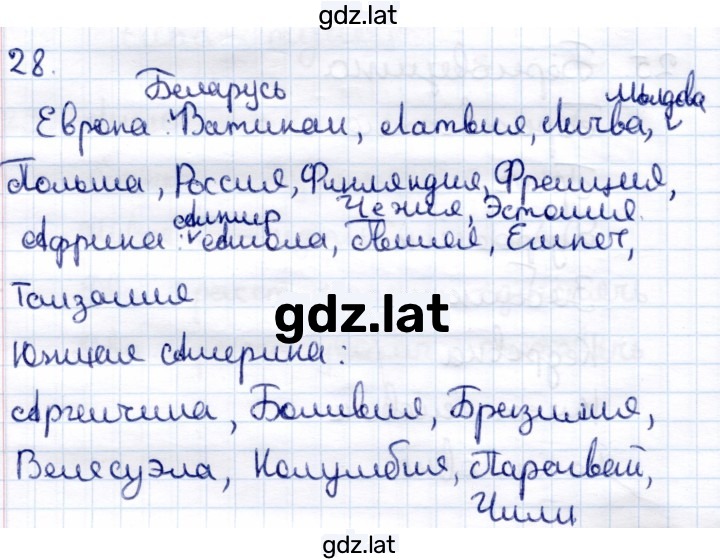 gdz.lat
28.
Беларусь
Молдова
Европа: Ватикан, Латвия, Литва,
Польша, Россия, Финляндия, Франция,
Чехия, Эстония.
Алжир
Африка: Ангола, Гвинея, Египет,
Танзания
gdz.lat
Южная Америка:
Аргентина, Боливия, Бразилия,
Венесуэла, Колумбия, Парагвай,
Чили
gdz.lat